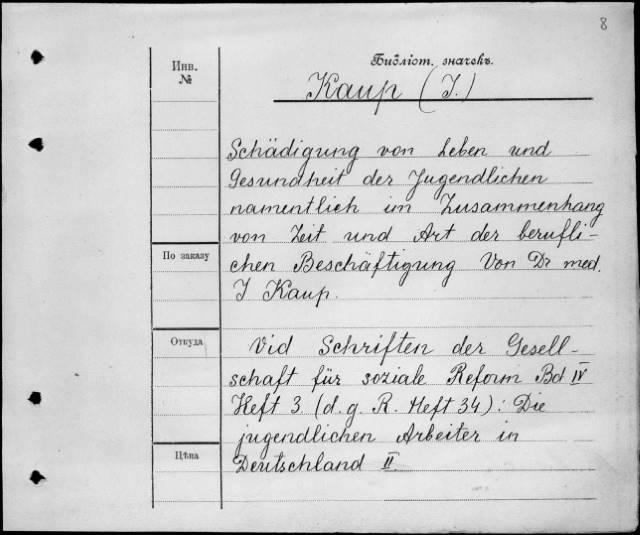 8
Инв.
№
Библіот. значекъ.
Kaup (I.)
Schädigung von Leben und
Gesundheit der Jugendlichen
namentlich im Zusammenhang
von Zeit und Art der berufli-
chen Beschäftigung Von Dr med.
I Kaup.
По заказу
Откуда
Vid Schriften der Gesell-
schaft für soziale Reform Bd IV
Heft 3 (d. g. R. Heft 34): Die
jugendlichen Arbeiter in
Deutschland II.
Цѣна